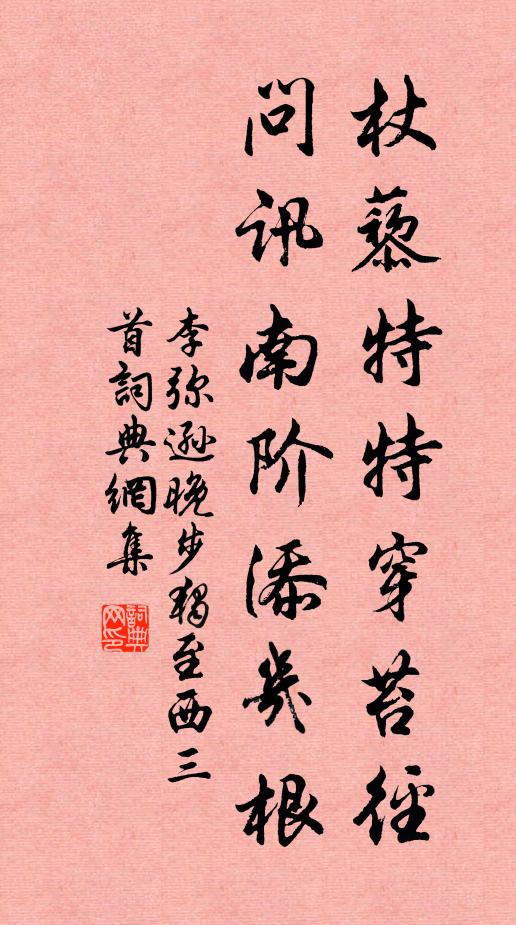 杖藜特特穿苔径
问讯南阶添幾根
李弥遜晚步独至西三
首詞典網集
詞典网印